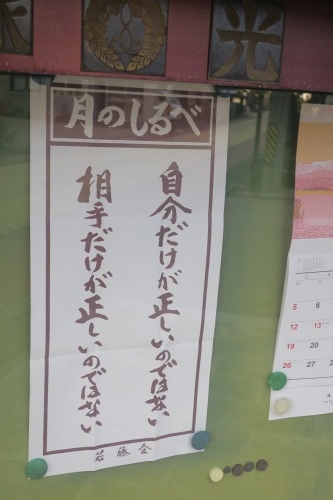 光
月のしるべ
自分だけが正しいのではない
相手だけが正しいのではない
若藤会
5 6
12 13
19 20
26 27